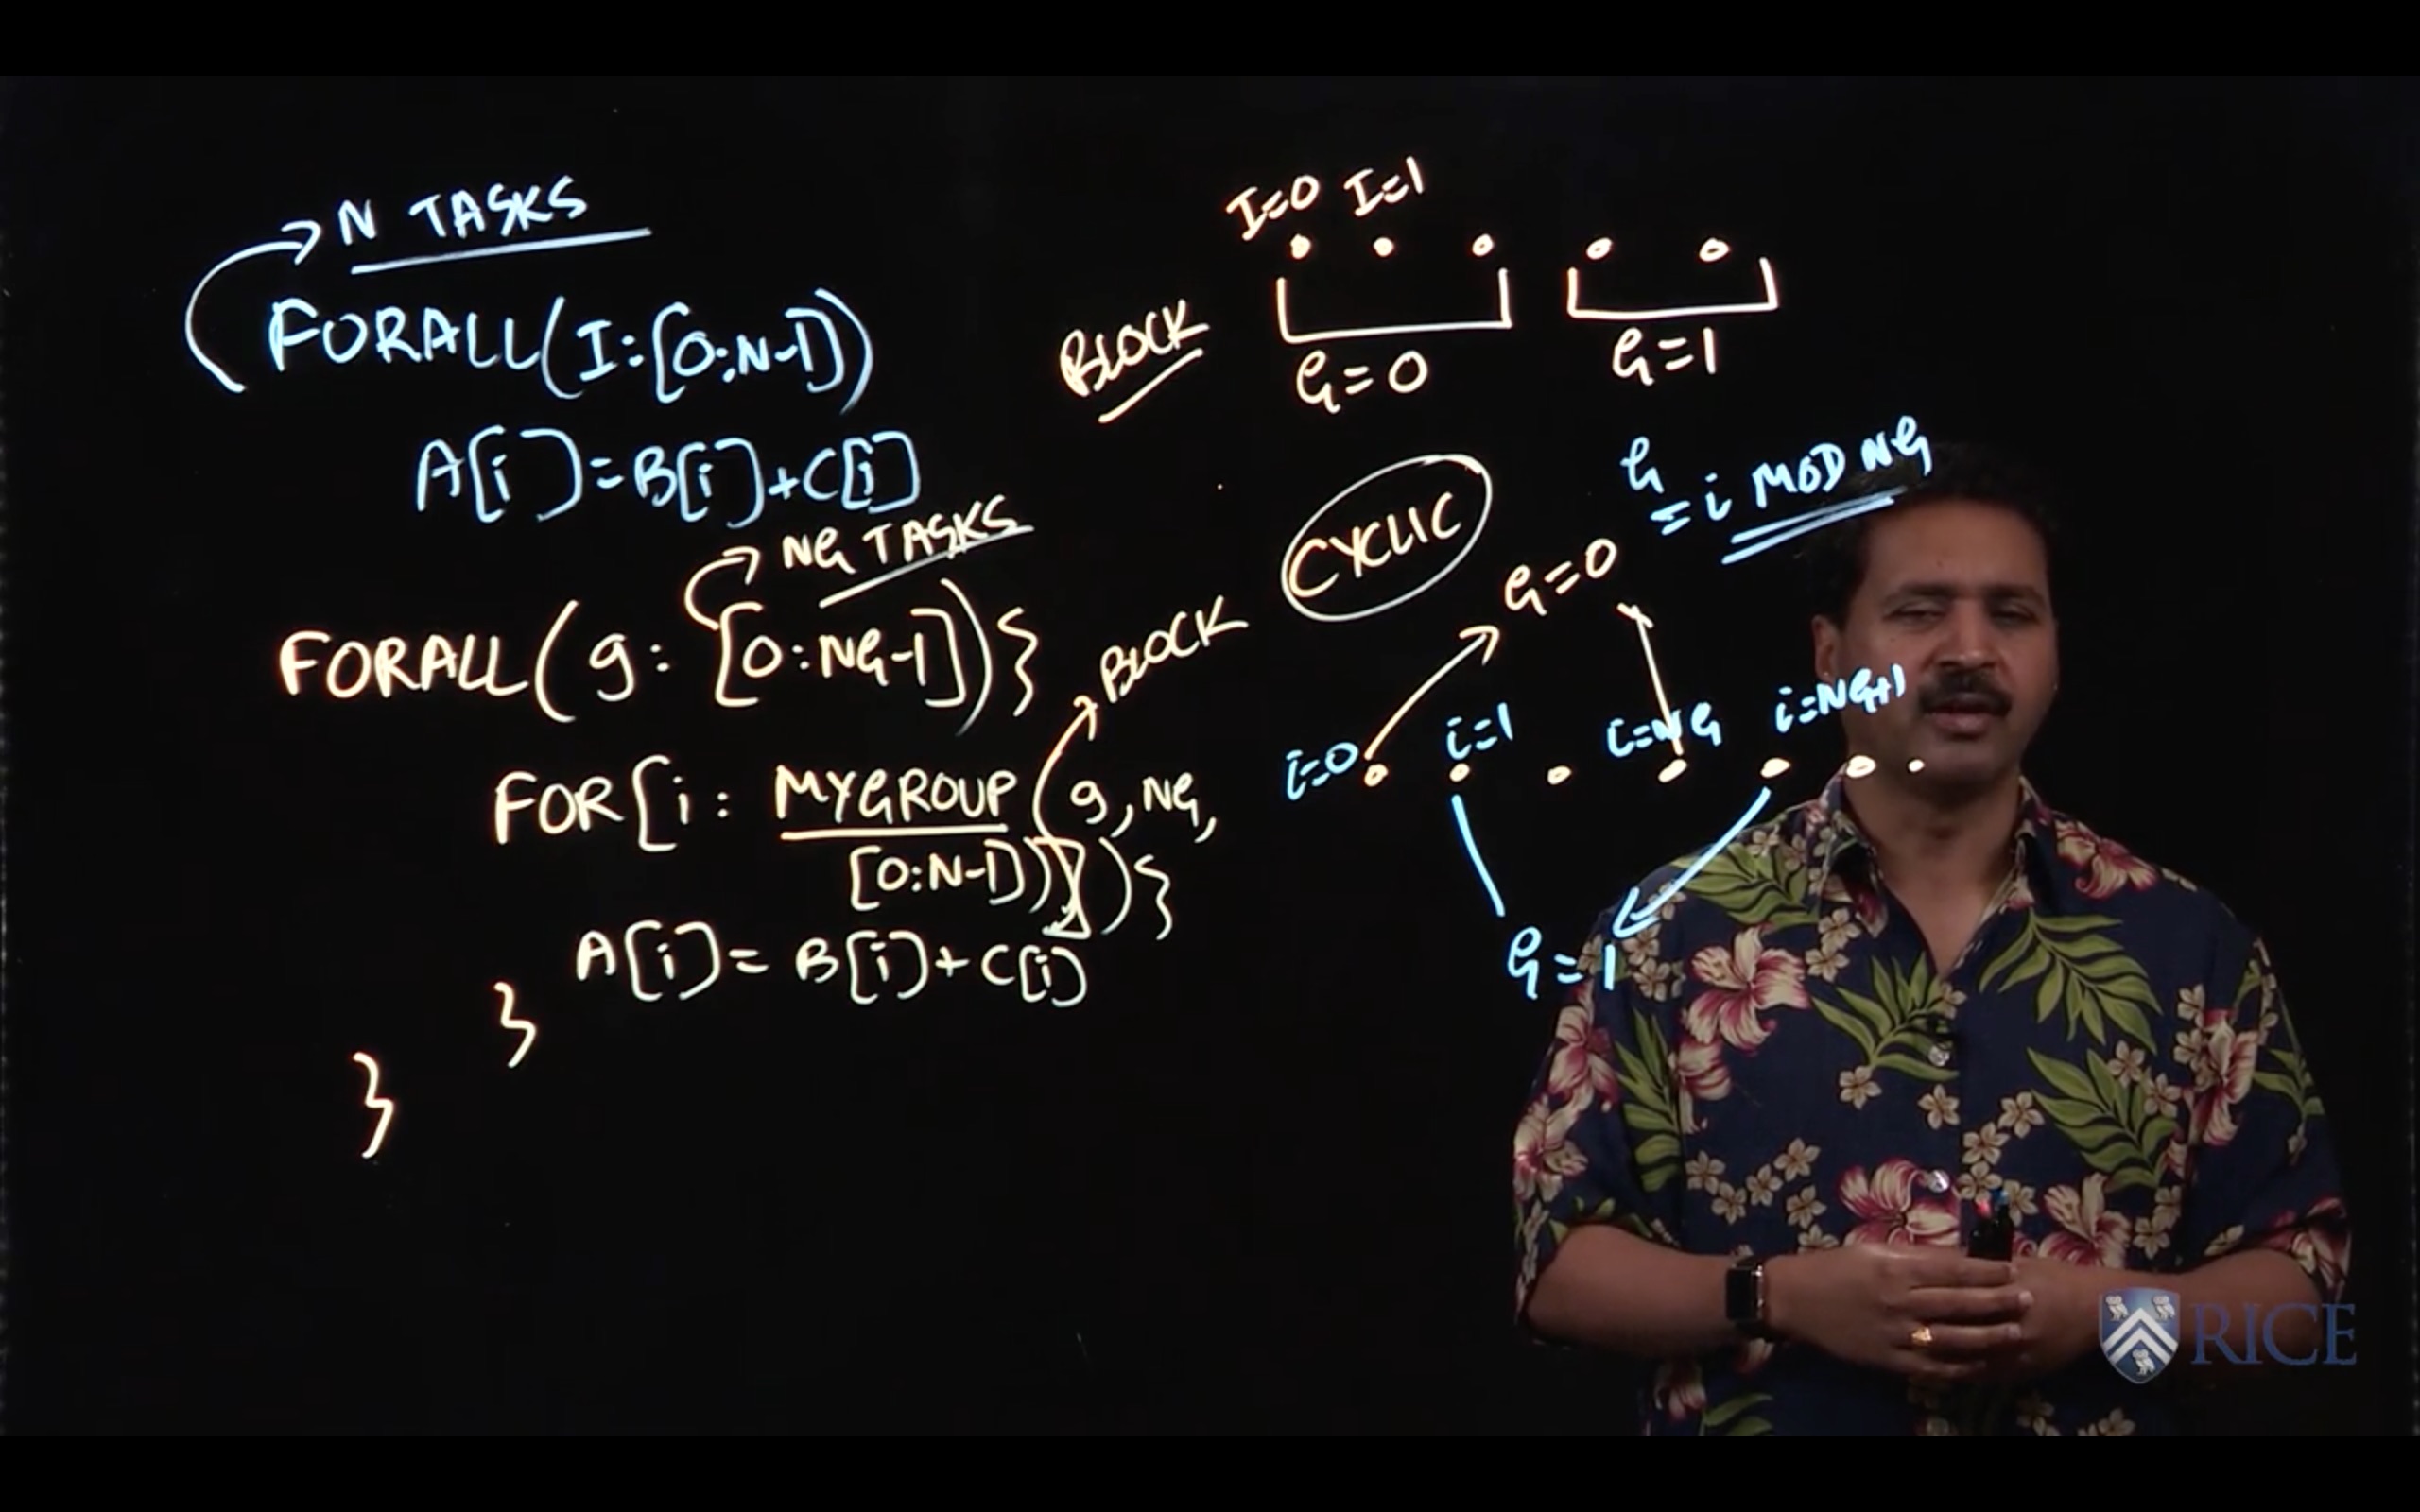 N TASKS
FORALL(I:[0:N-1])
A[i]=B[i]+C[i]
NG TASKS
FORALL(g: [0:NG-1]){
BLOCK
FOR[i: MYGROUP (g, NG,
[0:N-1])){
A[i]= B[i]+C[i]
}
}
I=0 I=1
BLOCK
G=0 G=1
CYCLIC
G
= i MOD NG
G=0
i=0 i=1 i=NG i=NG+1
G=1
RICE